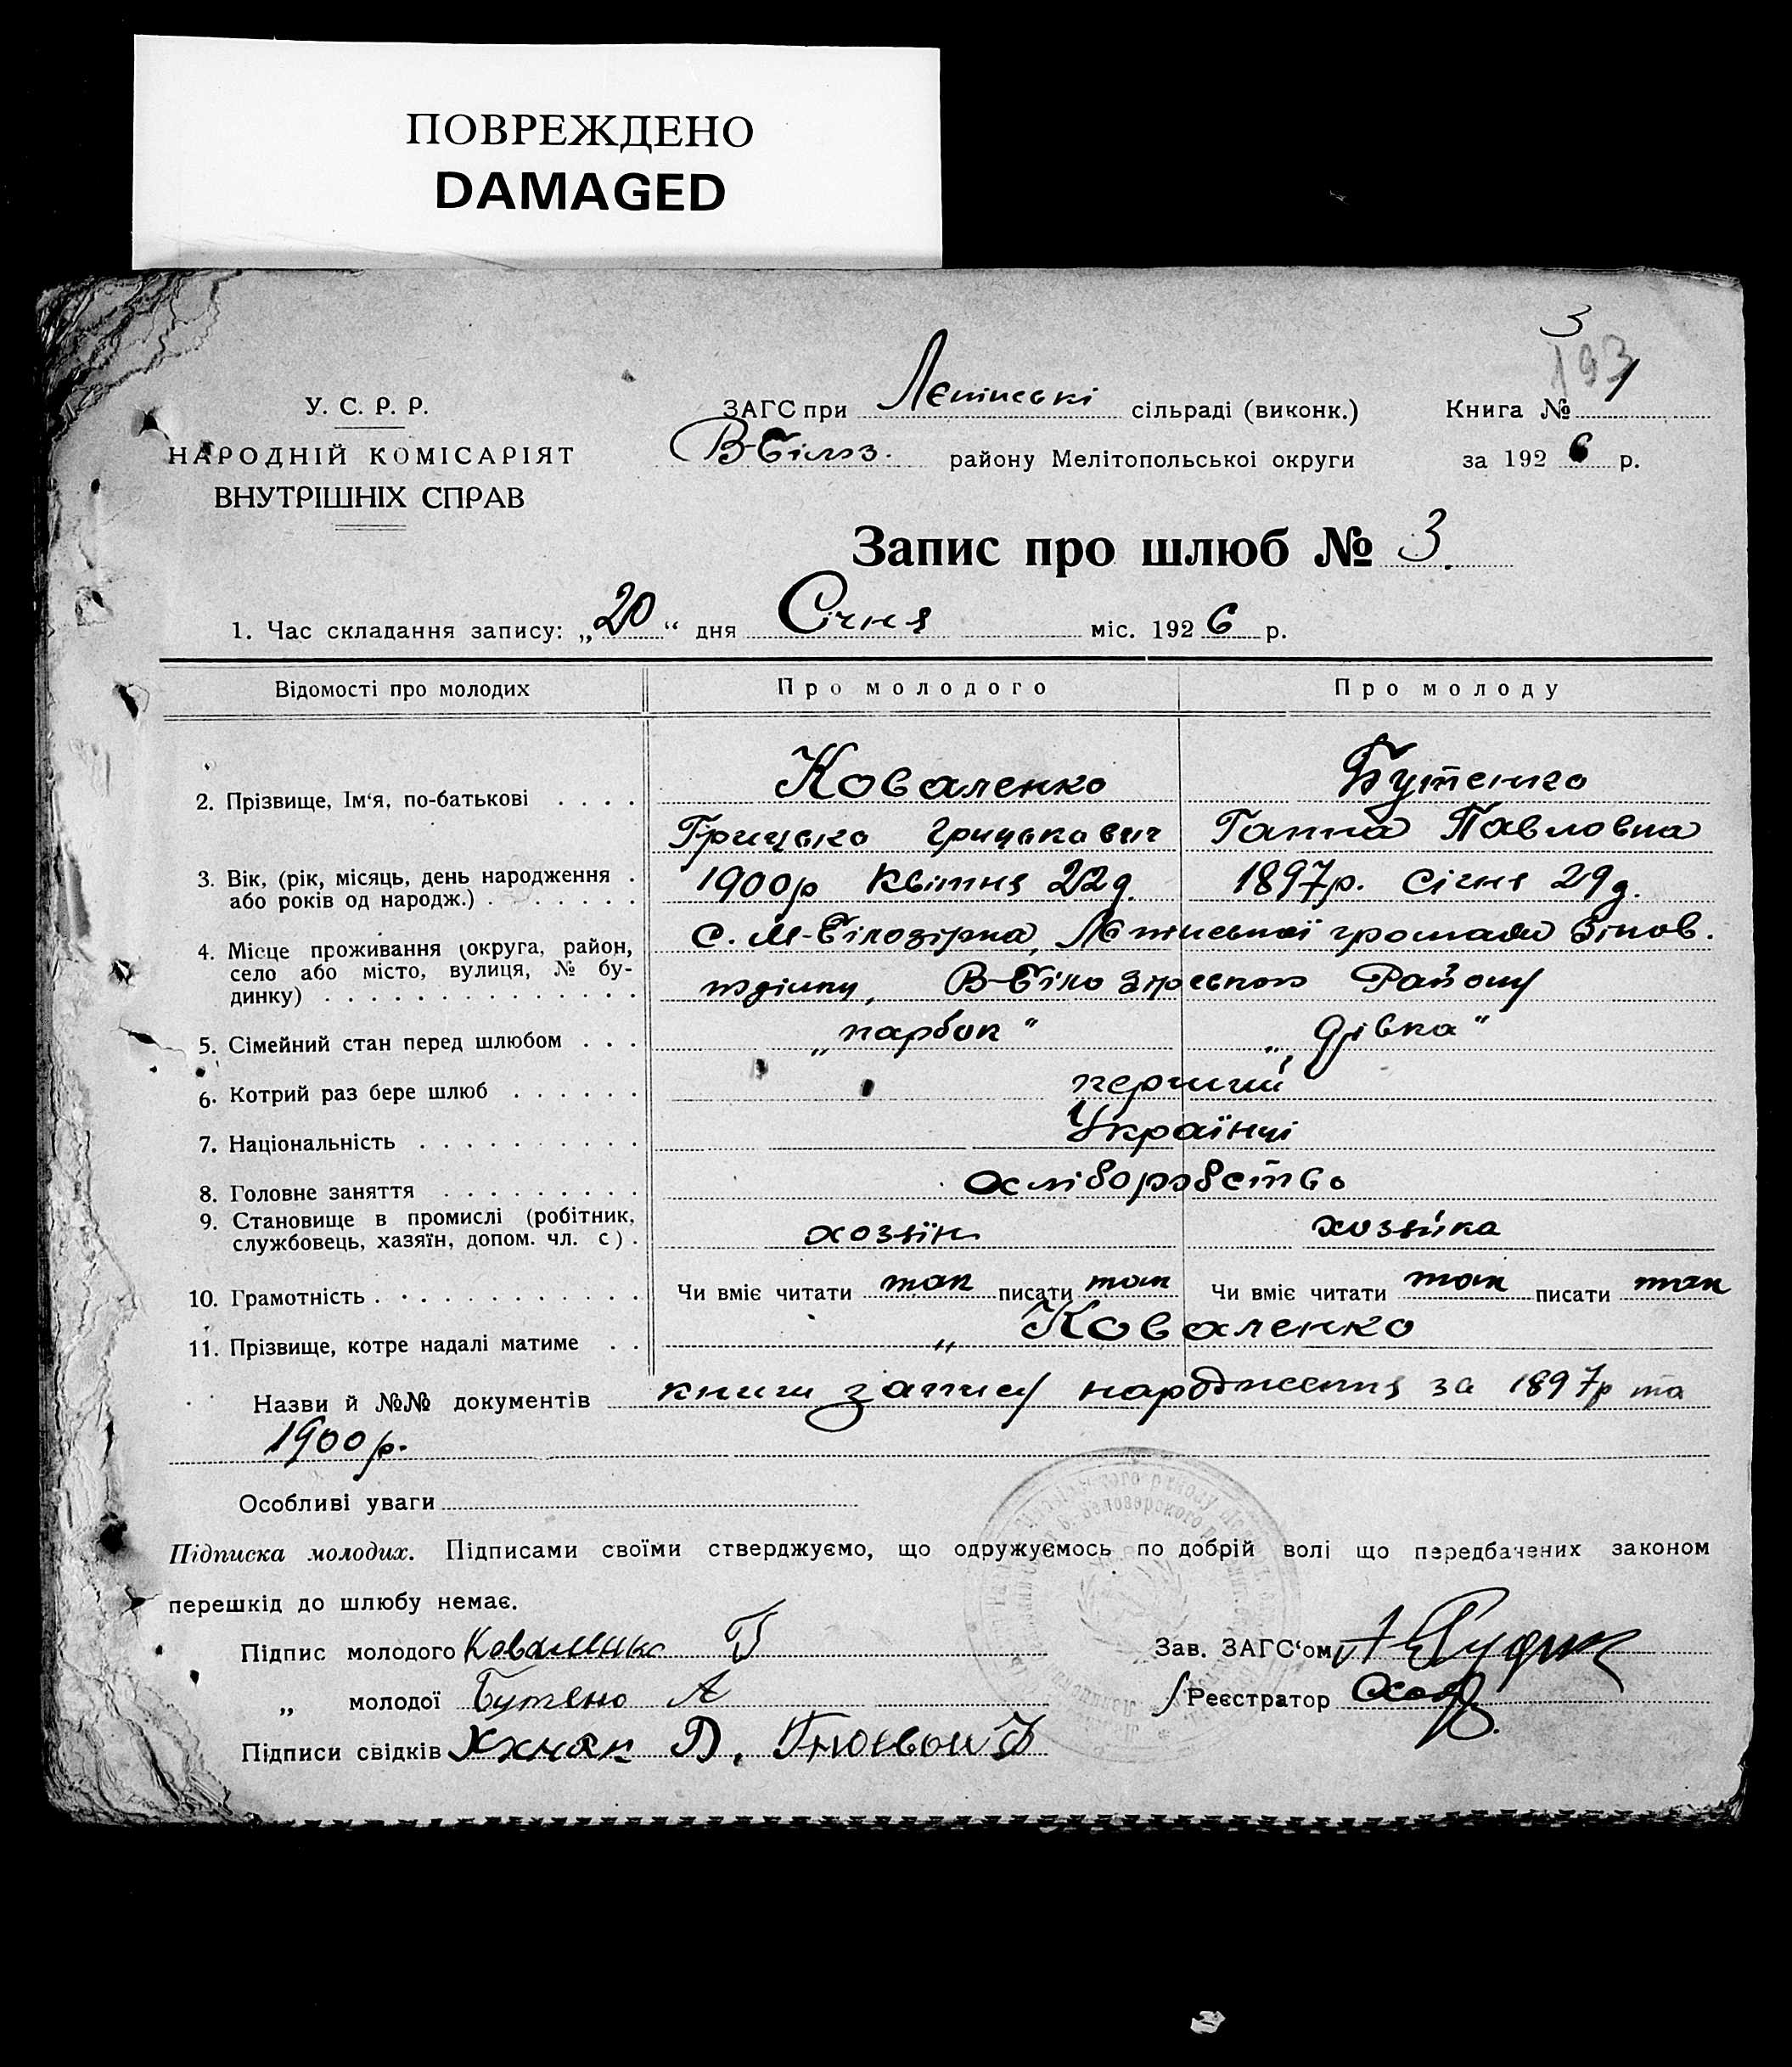 ПОВРЕЖДЕНО
DAMAGED
3
193
У. С. Р. Р.
НАРОДНІЙ КОМІСАРІЯТ
ВНУТРІШНІХ СПРАВ
ЗАГС при сільраді (виконк.) Книга № 1
В-Білоз. району Мелітопольської округи за 1926 р.
Запис про шлюб № 3.
1. Час складання запису: „20“ дня Січня міс. 1926 р.
Відомості про молодих Про молодого Про молоду
2. Прізвище, Ім‘я, по-батькові . . . . Коваленко Бутенко
Грицько Грицькович Ганна Павловна
3. Вік, (рік, місяць, день народження . 1900р Квітня 22д. 1897р. Січня 29д.
або років од народж.) . . . . . .
4. Місце проживання (округа, район, с. М-Білозірка, громади
село або місто, вулиця, № бу- В-Білозірського Району
динку) . . . . . . . . . . . . . .
5. Сімейний стан перед шлюбом . . . „парбок“ „дівка“
6. Котрий раз бере шлюб . . . . . . перший
7. Національність . . . . . . . . . . Українці
8. Головне заняття . . . . . . . . .
9. Становище в промислі (робітник, хозяїн хозяйка
службовець, хазяїн, допом. чл. с) .
10. Грамотність . . . . . . . . . . . Чи вміє читати так писати так Чи вміє читати так писати так
11. Прізвище, котре надалі матиме . . „ Коваленко
Назви й №№ документів книги запису народження за 1897р та
1900р.
Особливі уваги
Підписка молодих. Підписами своїми стверджуємо, що одружуємось по добрій волі що передбачених законом
перешкід до шлюбу немає.
Підпис молодого Коваленко Г Зав. ЗАГС‘ом
„ молодої Бутено А Реєстратор
Підписи свідків